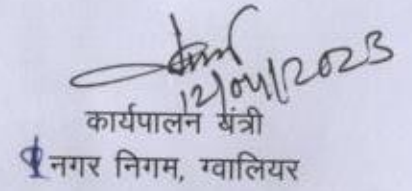 12/04/2023
कार्यपालन यंत्री
नगर निगम, ग्वालियर